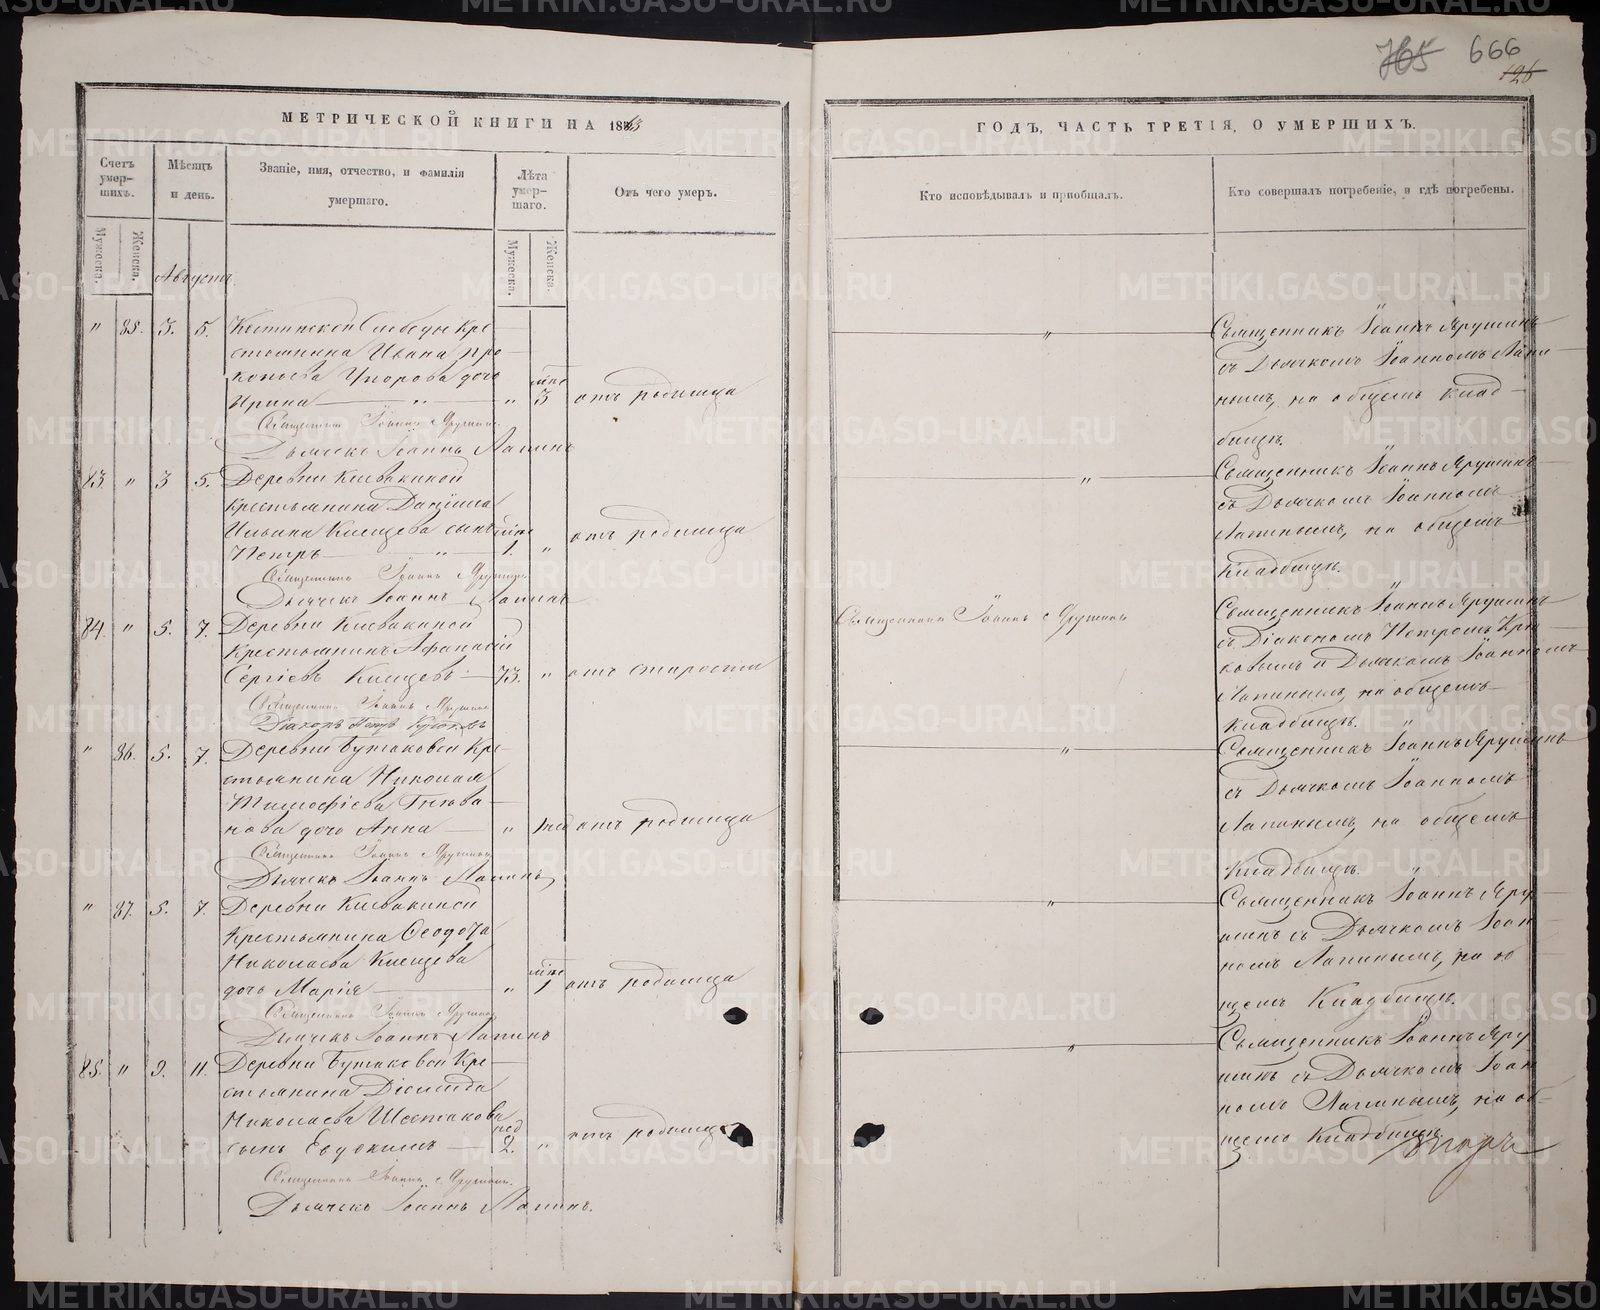 765 666
126
МЕТРИЧЕСКОЙ КНИГИ НА 1863
ГОДЪ, ЧАСТЬ ТРЕТІЯ, О УМЕРШИХЪ.
Счетъ умер-шихъ.
Мужеска.
Женска.
Мѣсяцъ и день.
Званіе, имя, отчество, и фамилія умершаго.
Лѣта умер-шаго.
Мужеска.
Женска.
Отъ чего умеръ.
Кто исповѣдывалъ и пріобщалъ.
Кто совершалъ погребеніе, и гдѣ погребены.
Августъ
" 85. 3. 5. Слободы Кре
стьянина Ивана Про
копьева Упорова дочь лѣтъ
Ирина " " 3 отъ родимца
Священникъ Іоаннъ Ярушинъ
Дьячекъ Іоаннъ Лапинъ
"
Священникъ Іоаннъ Ярушинъ
съ Дьячкомъ Іоанномъ Лапи
нымъ, на общемъ клад
бищѣ.
83. " 3 5. Деревни Клевакиной
Крестьянина Даніила
Ильина Клещева сынъ
Петръ " 1. " отъ родимца
Священникъ Іоаннъ Ярушинъ
Дьячекъ Іоаннъ Лапинъ
"
Священникъ Іоаннъ Ярушинъ
съ Дьячкомъ Іоанномъ
Лапинымъ, на общемъ
Кладбищѣ.
84. " 5. 7. Деревни Клевакиной
Крестьянинъ Афанасій
Сергіевъ Клещевъ 73. " отъ старости
Священникъ Іоаннъ Ярушинъ
Діаконъ Петръ
Священникъ Іоаннъ Ярушинъ
Священникъ Іоаннъ Ярушинъ
съ Діакономъ Петромъ
ковымъ и Дьячкомъ Іоанномъ
Лапинымъ, на общемъ
Кладбищѣ.
" 86. 5. 7. Деревни Бутаковой Кре
стьянина Николая
Тимофіева
нова дочь Анна " отъ родимца
Священникъ Іоаннъ Ярушинъ
Дьячекъ Іоаннъ Лапинъ
"
Священникъ Іоаннъ Ярушинъ
съ Дьячкомъ Іоанномъ
Лапинымъ, на общемъ
Кладбищѣ.
" 87. 5. 7. Деревни Клевакиной
Крестьянина Ѳеодота
Николаева Клещева
дочь Марія " 1 отъ родимца
Священникъ Іоаннъ Ярушинъ
Дьячекъ Іоаннъ Лапинъ
"
Священникъ Іоаннъ Яру
шинъ съ Дьячкомъ Іоан
номъ Лапинымъ, на об
щемъ Кладбищѣ.
85. " 9. 11. Деревни Бутаковой Кре
стьянина Діомида
Николаева Шестакова нед
сынъ Евдокимъ 2. " отъ родимца
Священникъ Іоаннъ Ярушинъ.
Дьячекъ Іоаннъ Лапинъ.
"
Священникъ Іоаннъ Яру
шинъ съ Дьячкомъ Іоан
номъ Лапинымъ, на об-
щемъ Кладбищѣ
METRIKI.GASO-URAL.RU